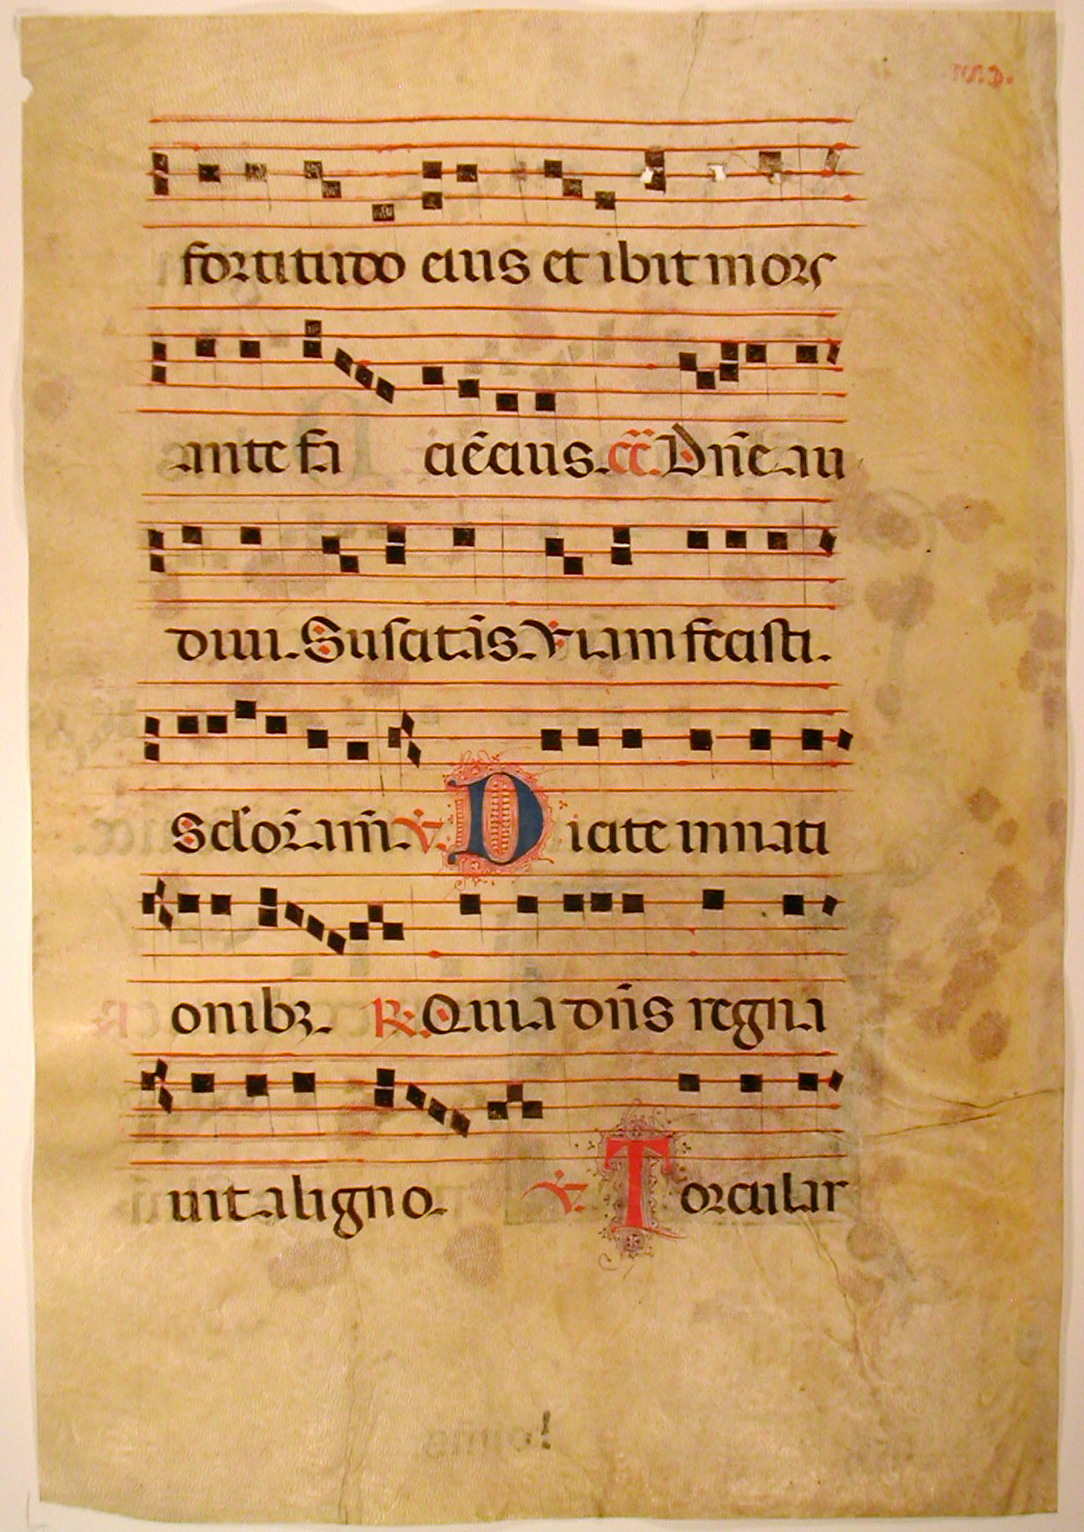 fortitudo eius et ibit mors
ante fa ciē eius. cc̄. Dn̄e au
diui. Suscitās. V̇ iam fecisti.
Sclōr̄ am̄. V̇. Dicite in nati
onibꝫ. ℟. Quia dn̄s regna
uit a ligno. V̇. Torcular